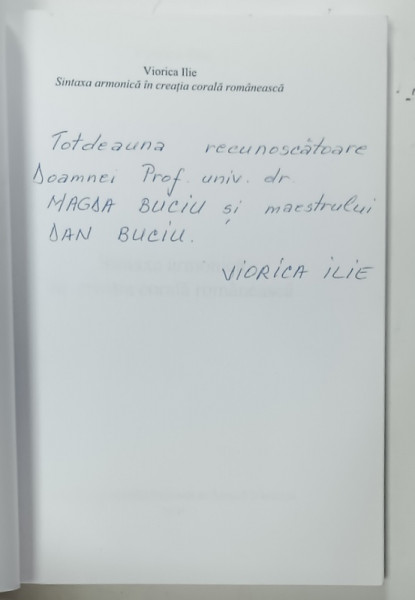 Viorica Ilie
Sintaxa armonică în creația corală românească
Totdeauna recunoscătoare
Doamnei Prof. univ. dr.
MAGDA BUCIU și maestrului
DAN BUCIU.
VIORICA ILIE